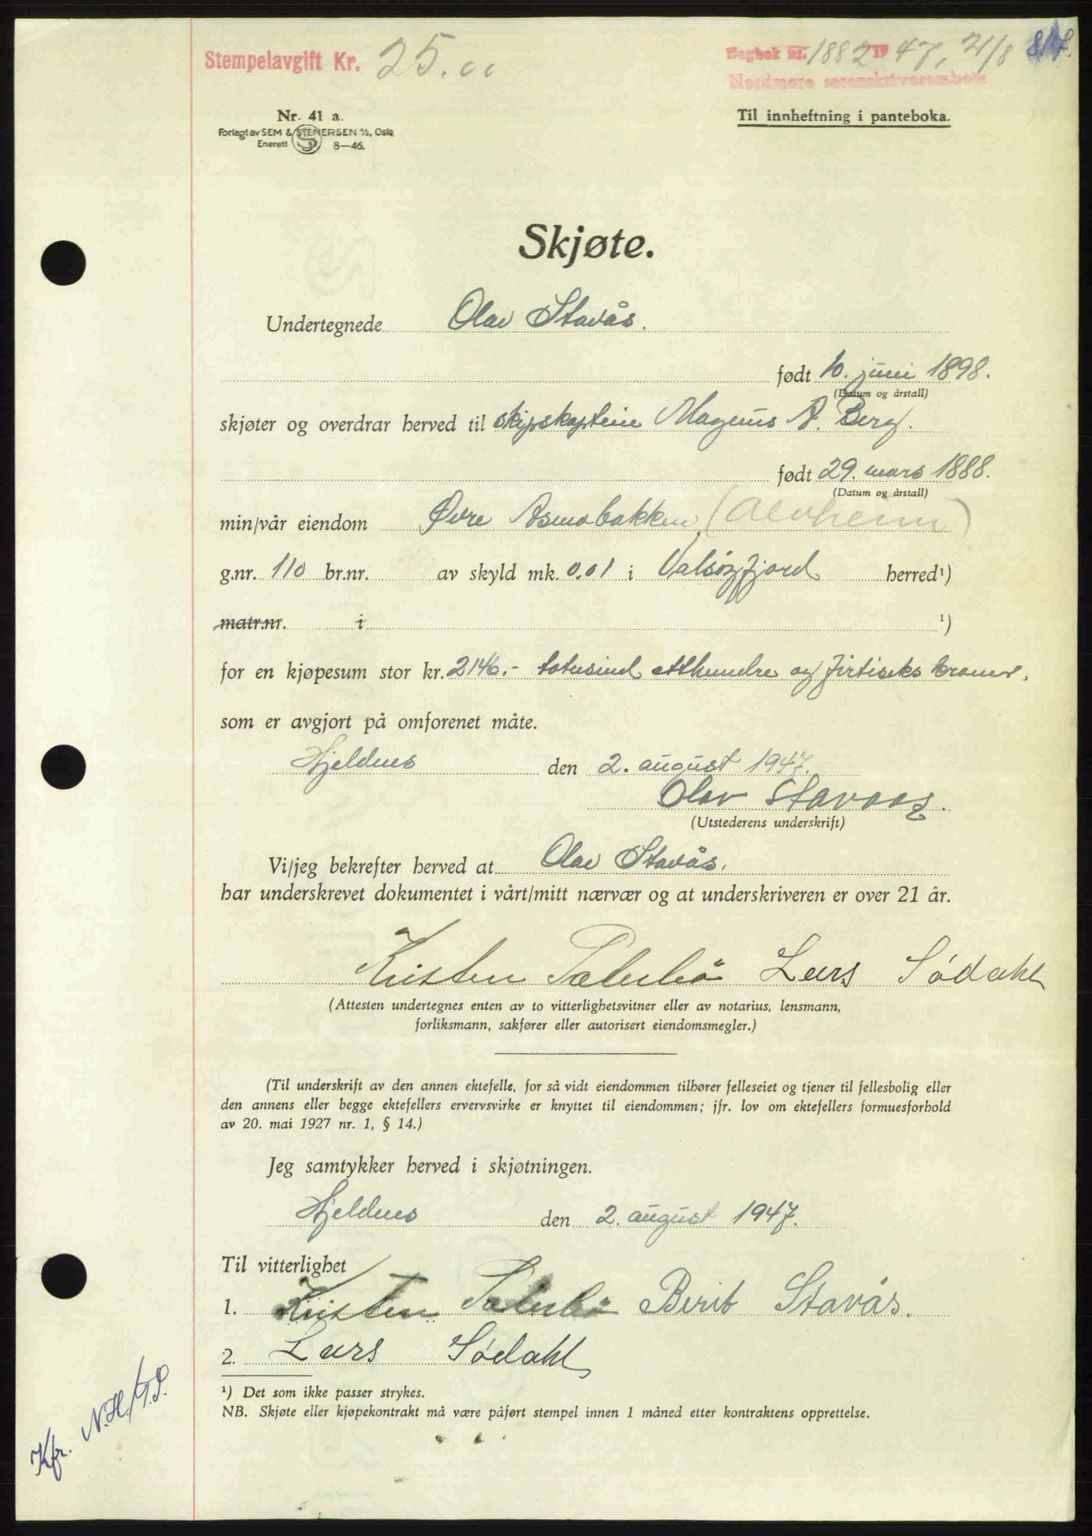 Stempelavgift Kr. 25.00
Dagbok nr. 1882 1947, 21/8 817.
Nordmøre sorenskriverembete
Nr. 41 a.
Forlagt av SEM & STENERSEN A/S, Oslo
Enerett 8—46.
Til innheftning i panteboka.
Skjøte.
Undertegnede Olav Stavås.
født 10. juni 1898.
(Datum og årstall)
skjøter og overdrar herved til skipskaptein Magnus A. Berg.
født 29. mars 1888.
(Datum og årstall)
min/vår eiendom Øvre Asmobakken (Alvheim)
g.nr. 110 br.nr. av skyld mk. 0.01 i Valsøyfjord herred¹)
matr.nr. i ¹)
for en kjøpesum stor kr. 2146.- totusind etthundre og firtiseks kroner.
som er avgjort på omforenet måte.
Hjeldnes den 2. august 1947.
Olav Stavaas.
(Utstederens underskrift)
Vi/jeg bekrefter herved at Olav Stavås.
har underskrevet dokumentet i vårt/mitt nærvær og at underskriveren er over 21 år.
Kristen Lars Sødahl
(Attesten undertegnes enten av to vitterlighetsvitner eller av notarius, lensmann,
forliksmann, sakfører eller autorisert eiendomsmegler.)
(Til underskrift av den annen ektefelle, for så vidt eiendommen tilhører felleseiet og tjener til fellesbolig eller
den annens eller begge ektefellers ervervsvirke er knyttet til eiendommen; jfr. lov om ektefellers formuesforhold
av 20. mai 1927 nr. 1, § 14.)
Jeg samtykker herved i skjøtningen.
Hjeldnes den 2. august 1947.
Til vitterlighet
1. Kristen Berit Stavås.
2. Lars Sødahl
¹) Det som ikke passer strykes.
NB. Skjøte eller kjøpekontrakt må være påført stempel innen 1 måned etter kontraktens opprettelse.
Kfr. N.H/T.P.